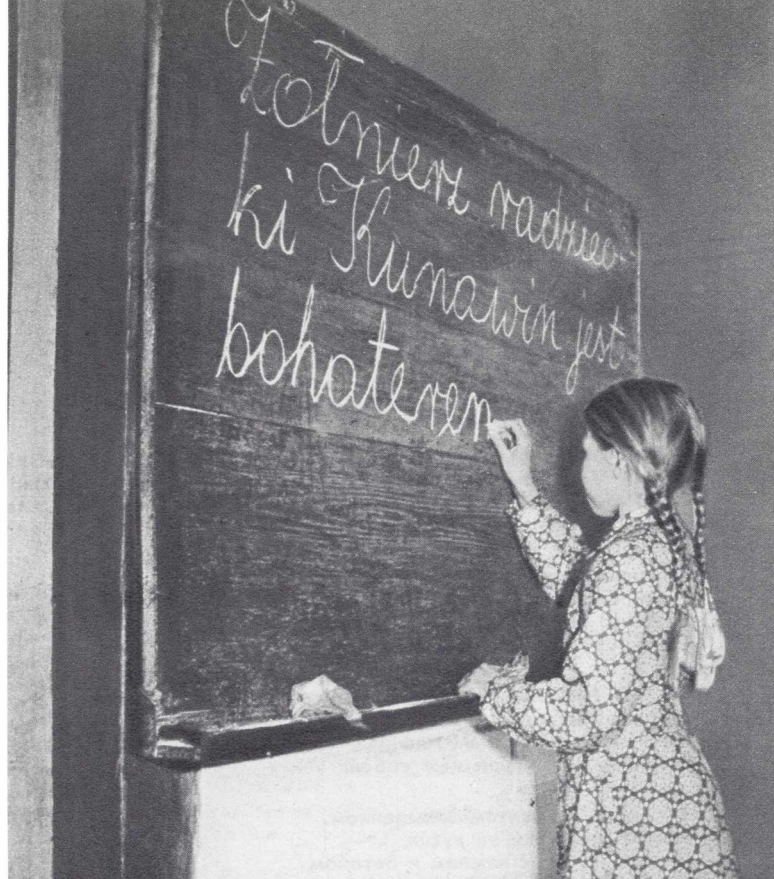 Żołnierz radziec-
ki Kunawin jest
bohaterem